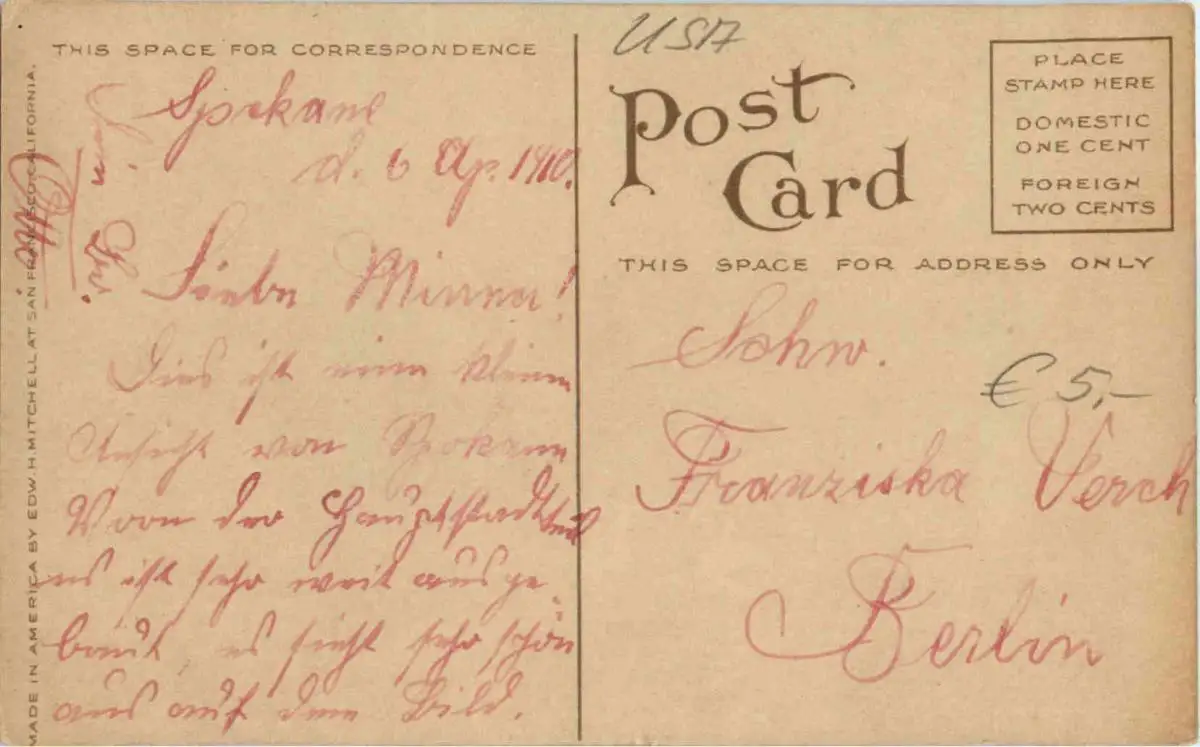 THIS SPACE FOR CORRESPONDENCE
Spokane
d. 6 Ap. 1910.
Liebe Minna!
Dies ist eine kleine
Ansicht von Spokane
Voon der Hauptstadtteil
es ist sehr weit ausge-
baut, es sieht sehr schön
aus auf dem Bild.
Otto
MADE IN AMERICA BY EDW. H. MITCHELL AT SAN FRANCISCO CALIFORNIA.
USA
Post
Card
PLACE
STAMP HERE
DOMESTIC
ONE CENT
FOREIGN
TWO CENTS
THIS SPACE FOR ADDRESS ONLY
Schw.
€ 5,-
Franziska Verch
Berlin